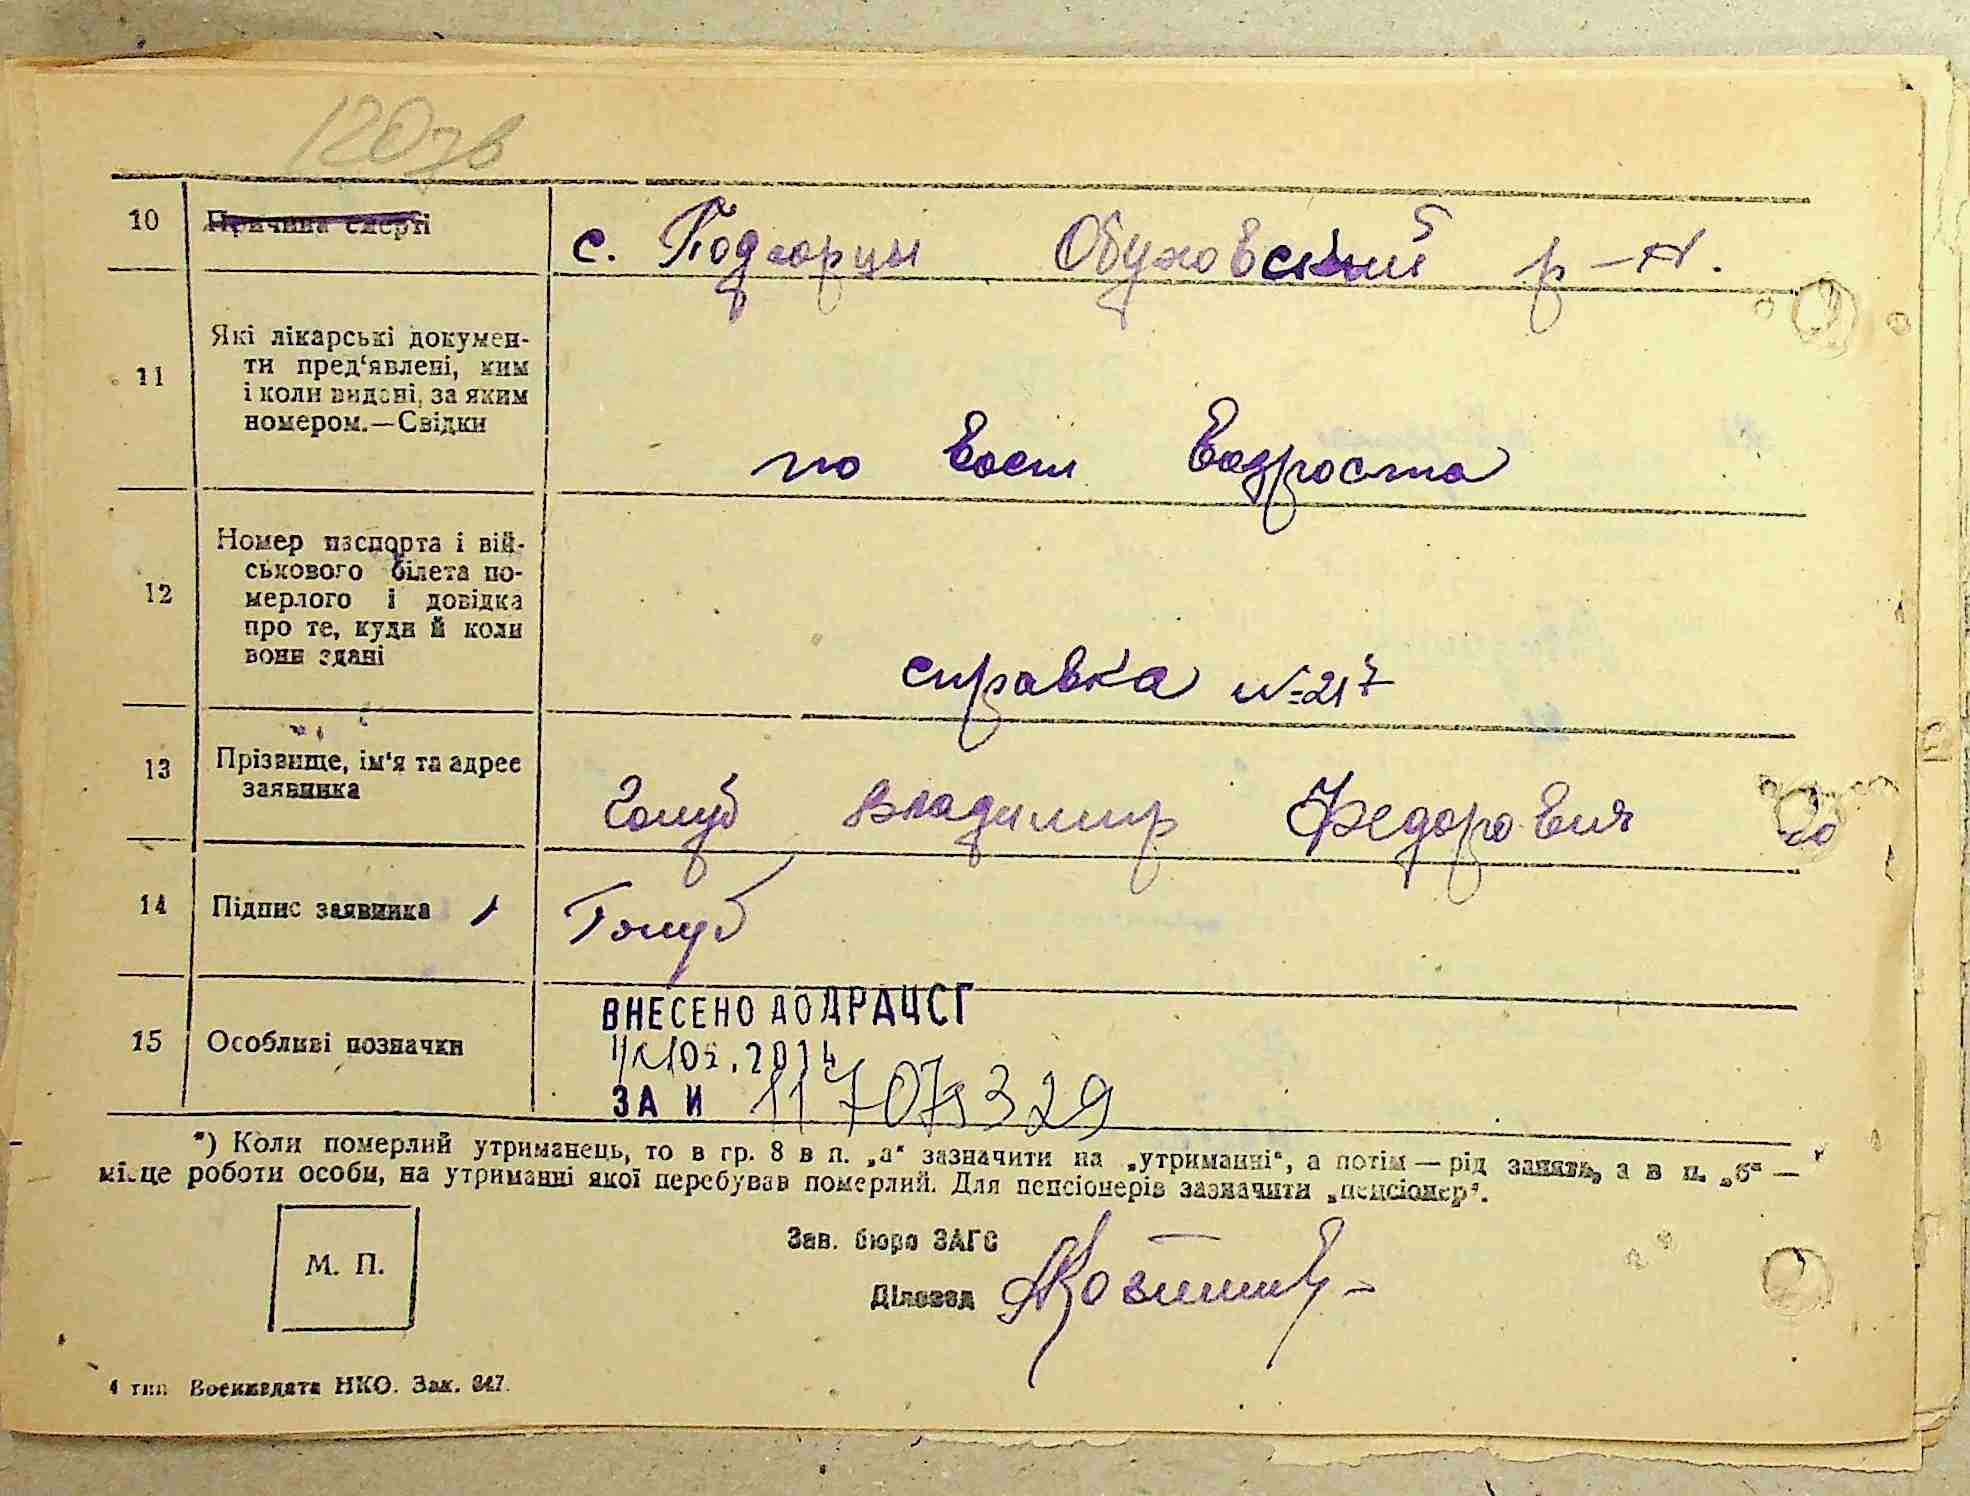 120зв
10 Причина смерті
с. Подгорцы Обуховский р-н.
11 Які лікарські докумен-
ти пред'явлені, ким
і коли видані, за яким
номером.—Свідки
по возроста
12 Номер паспорта і вій-
ськового білета по-
мерлого і довідка
про те, куди й коли
вони здані
справка №217
13 Прізвище, ім'я та адрес
заявника
Голуб Владимир Федорович
14 Підпис заявника
Голуб
15 Особливі позначки
ВНЕСЕНО ДО ДРАЦСГ
ЗА №
*) Коли померлий утриманець, то в гр. 8 в п. „а“ зазначити на „утриманні“, а потім — рід занять, а в п. „б“ —
місце роботи особи, на утриманні якої перебував померлий. Для пенсіонерів зазначити „пенсіонер“.
М. П.
Зав. бюро ЗАГС
Діловод
4 тип Воениздата НКО. Зак. 647.